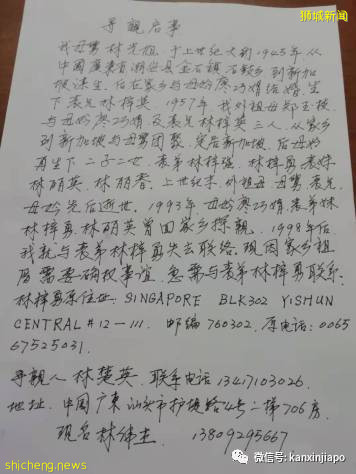 狮城新闻
寻亲启事
我母舅林光祖，于上世纪大约1945年从
中国广东省潮安县金石镇石彀乡到新加
坡谋生，后在家乡与母妗廖巧婿结婚，生
下表兄林梓英。1957年我外祖母郑玉板
与母妗廖巧婿及表兄林梓英三人，从家乡
到新加坡与母舅团聚，定居新加坡，后母妗
再生下二子二女，表弟林梓强、林梓勇表妹
林丽英、林丽香。上世纪末，外祖母、母舅、表兄
母妗先后逝世。1993年母妗廖巧婿，表弟妹
林梓勇、林丽英曾回家乡探亲，1998年后
我就与表弟林梓勇失去联络。现因家乡祖
厝需要确权事谊，急需与表弟林梓勇联系.
林梓勇原住址：SINGAPORE BLK302 YISHUN
CENTRAL #12—111. 邮编760302.原电话：0065
67525031.
寻亲人 林楚英. 联系电话13417103026.
地址：中国广东汕头市护堤路4号二梯706房.
现名 林伟 13809295667
shicheng.news
微信号: kanxinjiapo